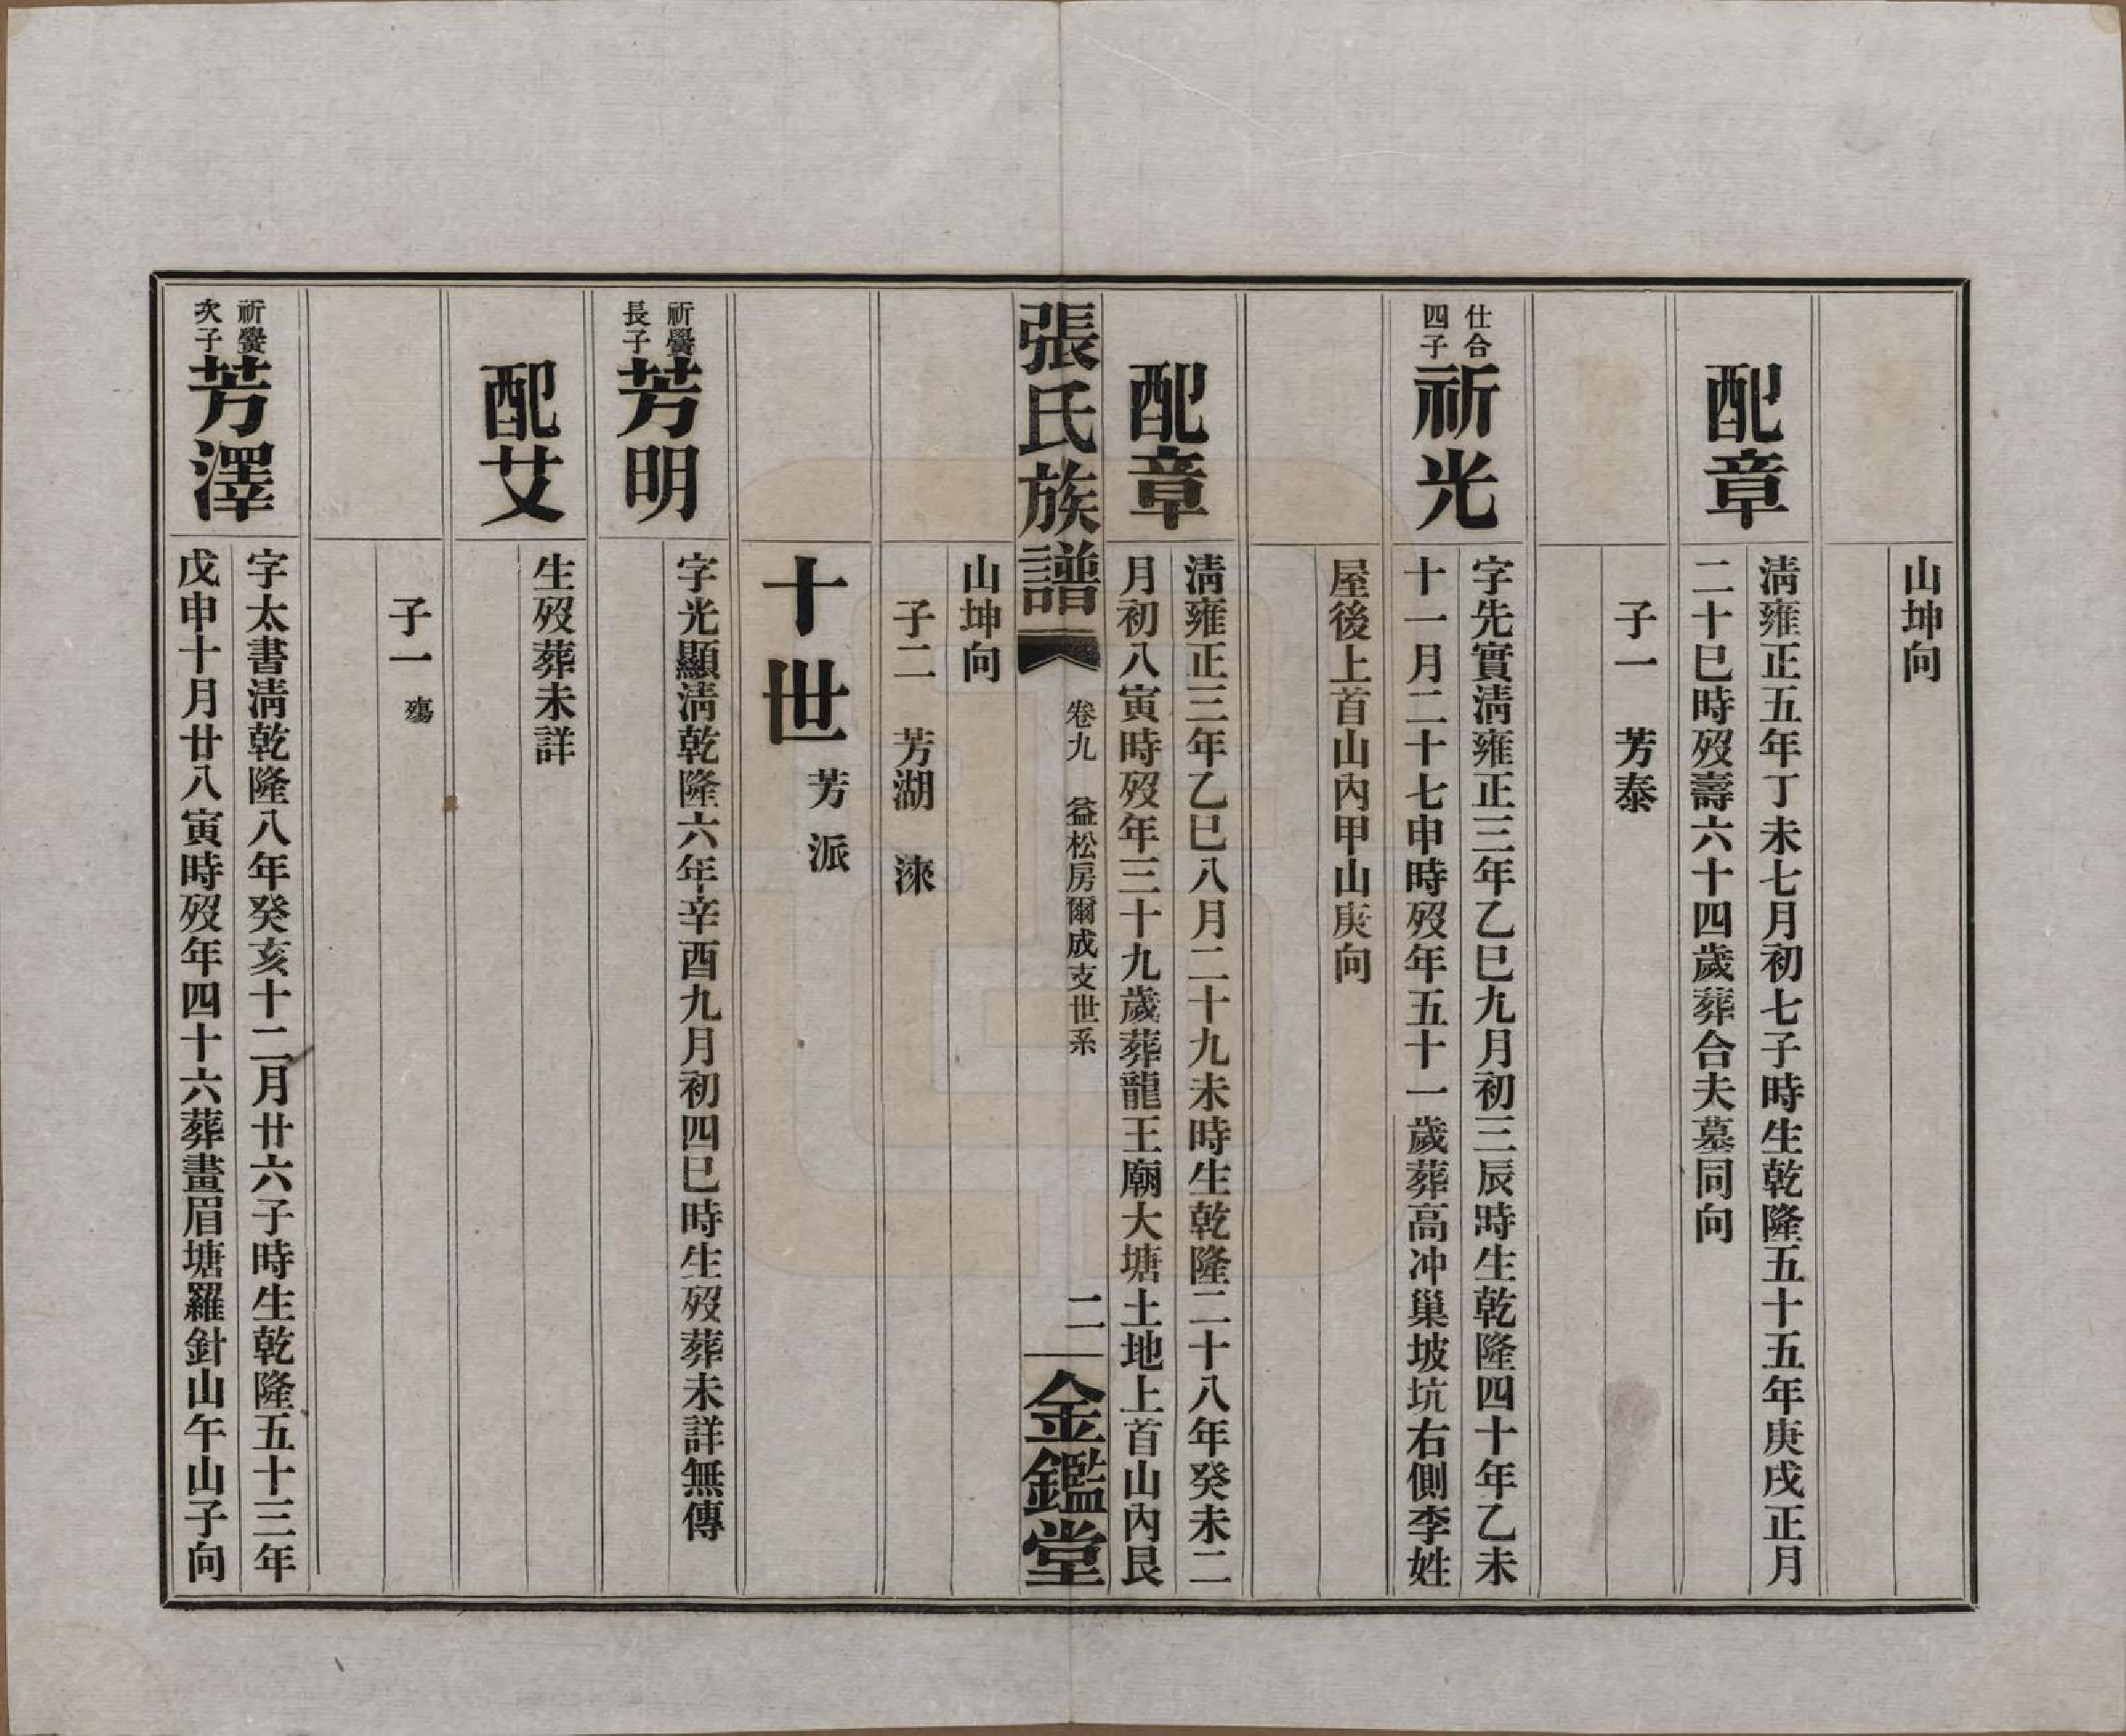 山坤向
配章
清雍正五年丁未七月初七子時生乾隆五十五年庚戌正月
二十巳時歿壽六十四歲葬合夫墓同向
子一　芳泰
仕合
四子
祈光
字先實清雍正三年乙巳九月初三辰時生乾隆四十年乙未
十一月二十七申時歿年五十一歲葬高冲巢坡坑右側李姓
屋後上首山內甲山庚向
配章
清雍正三年乙巳八月二十九未時生乾隆二十八年癸未二
月初八寅時歿年三十九歲葬龍王廟大塘土地上首山內艮
張氏族譜
卷九　益松房爾成支世系
二
金鑑堂
山坤向
子二　芳湖　淶
十世　芳派
祈
長子
芳明
字光顯清乾隆六年辛酉九月初四巳時生歿葬未詳無傳
配艾
生歿葬未詳
子一　殤
祈
次子
芳澤
字太書清乾隆八年癸亥十二月廿六子時生乾隆五十三年
戊申十月廿八寅時歿年四十六葬畫眉塘羅針山午山子向